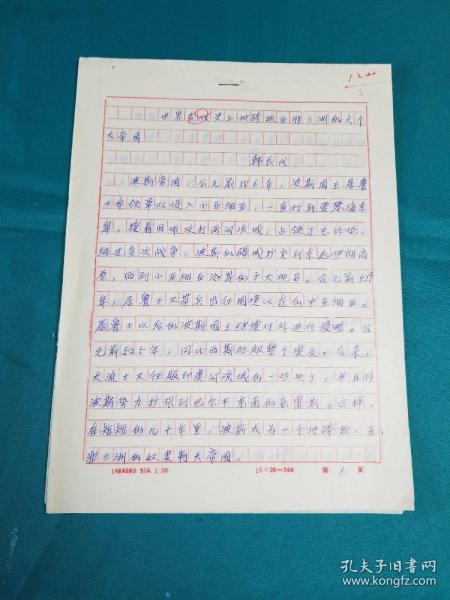 世界古代史上地跨欧亚非三洲的六个
大帝国
韩长代
波斯帝国。公元前546年，波斯国王居鲁
士率领军队侵入小亚细亚，一直打到爱琴海东
岸，接着回师攻打两河流域，占领了巴比伦。
经过多次战争，波斯的疆域扩充到东起伊朗高
原，西到小亚细亚沿岸的广大地区。公元前529
年，居鲁士又带兵出征国境以东的中亚细亚。
居鲁士以后的波斯国王继续对外进行侵略。公
元前525年，冈比西斯征服整个埃及。后来，
大流士又征服印度河流域的一些地方，并且将
波斯势力扩张到巴尔干东南的色雷斯。这样，
在短短的几十年里，波斯成为一个地跨欧、亚、
非三洲的奴隶制大帝国。
15×20=300
第 1 页
孔夫子旧书网
www.kongfz.com